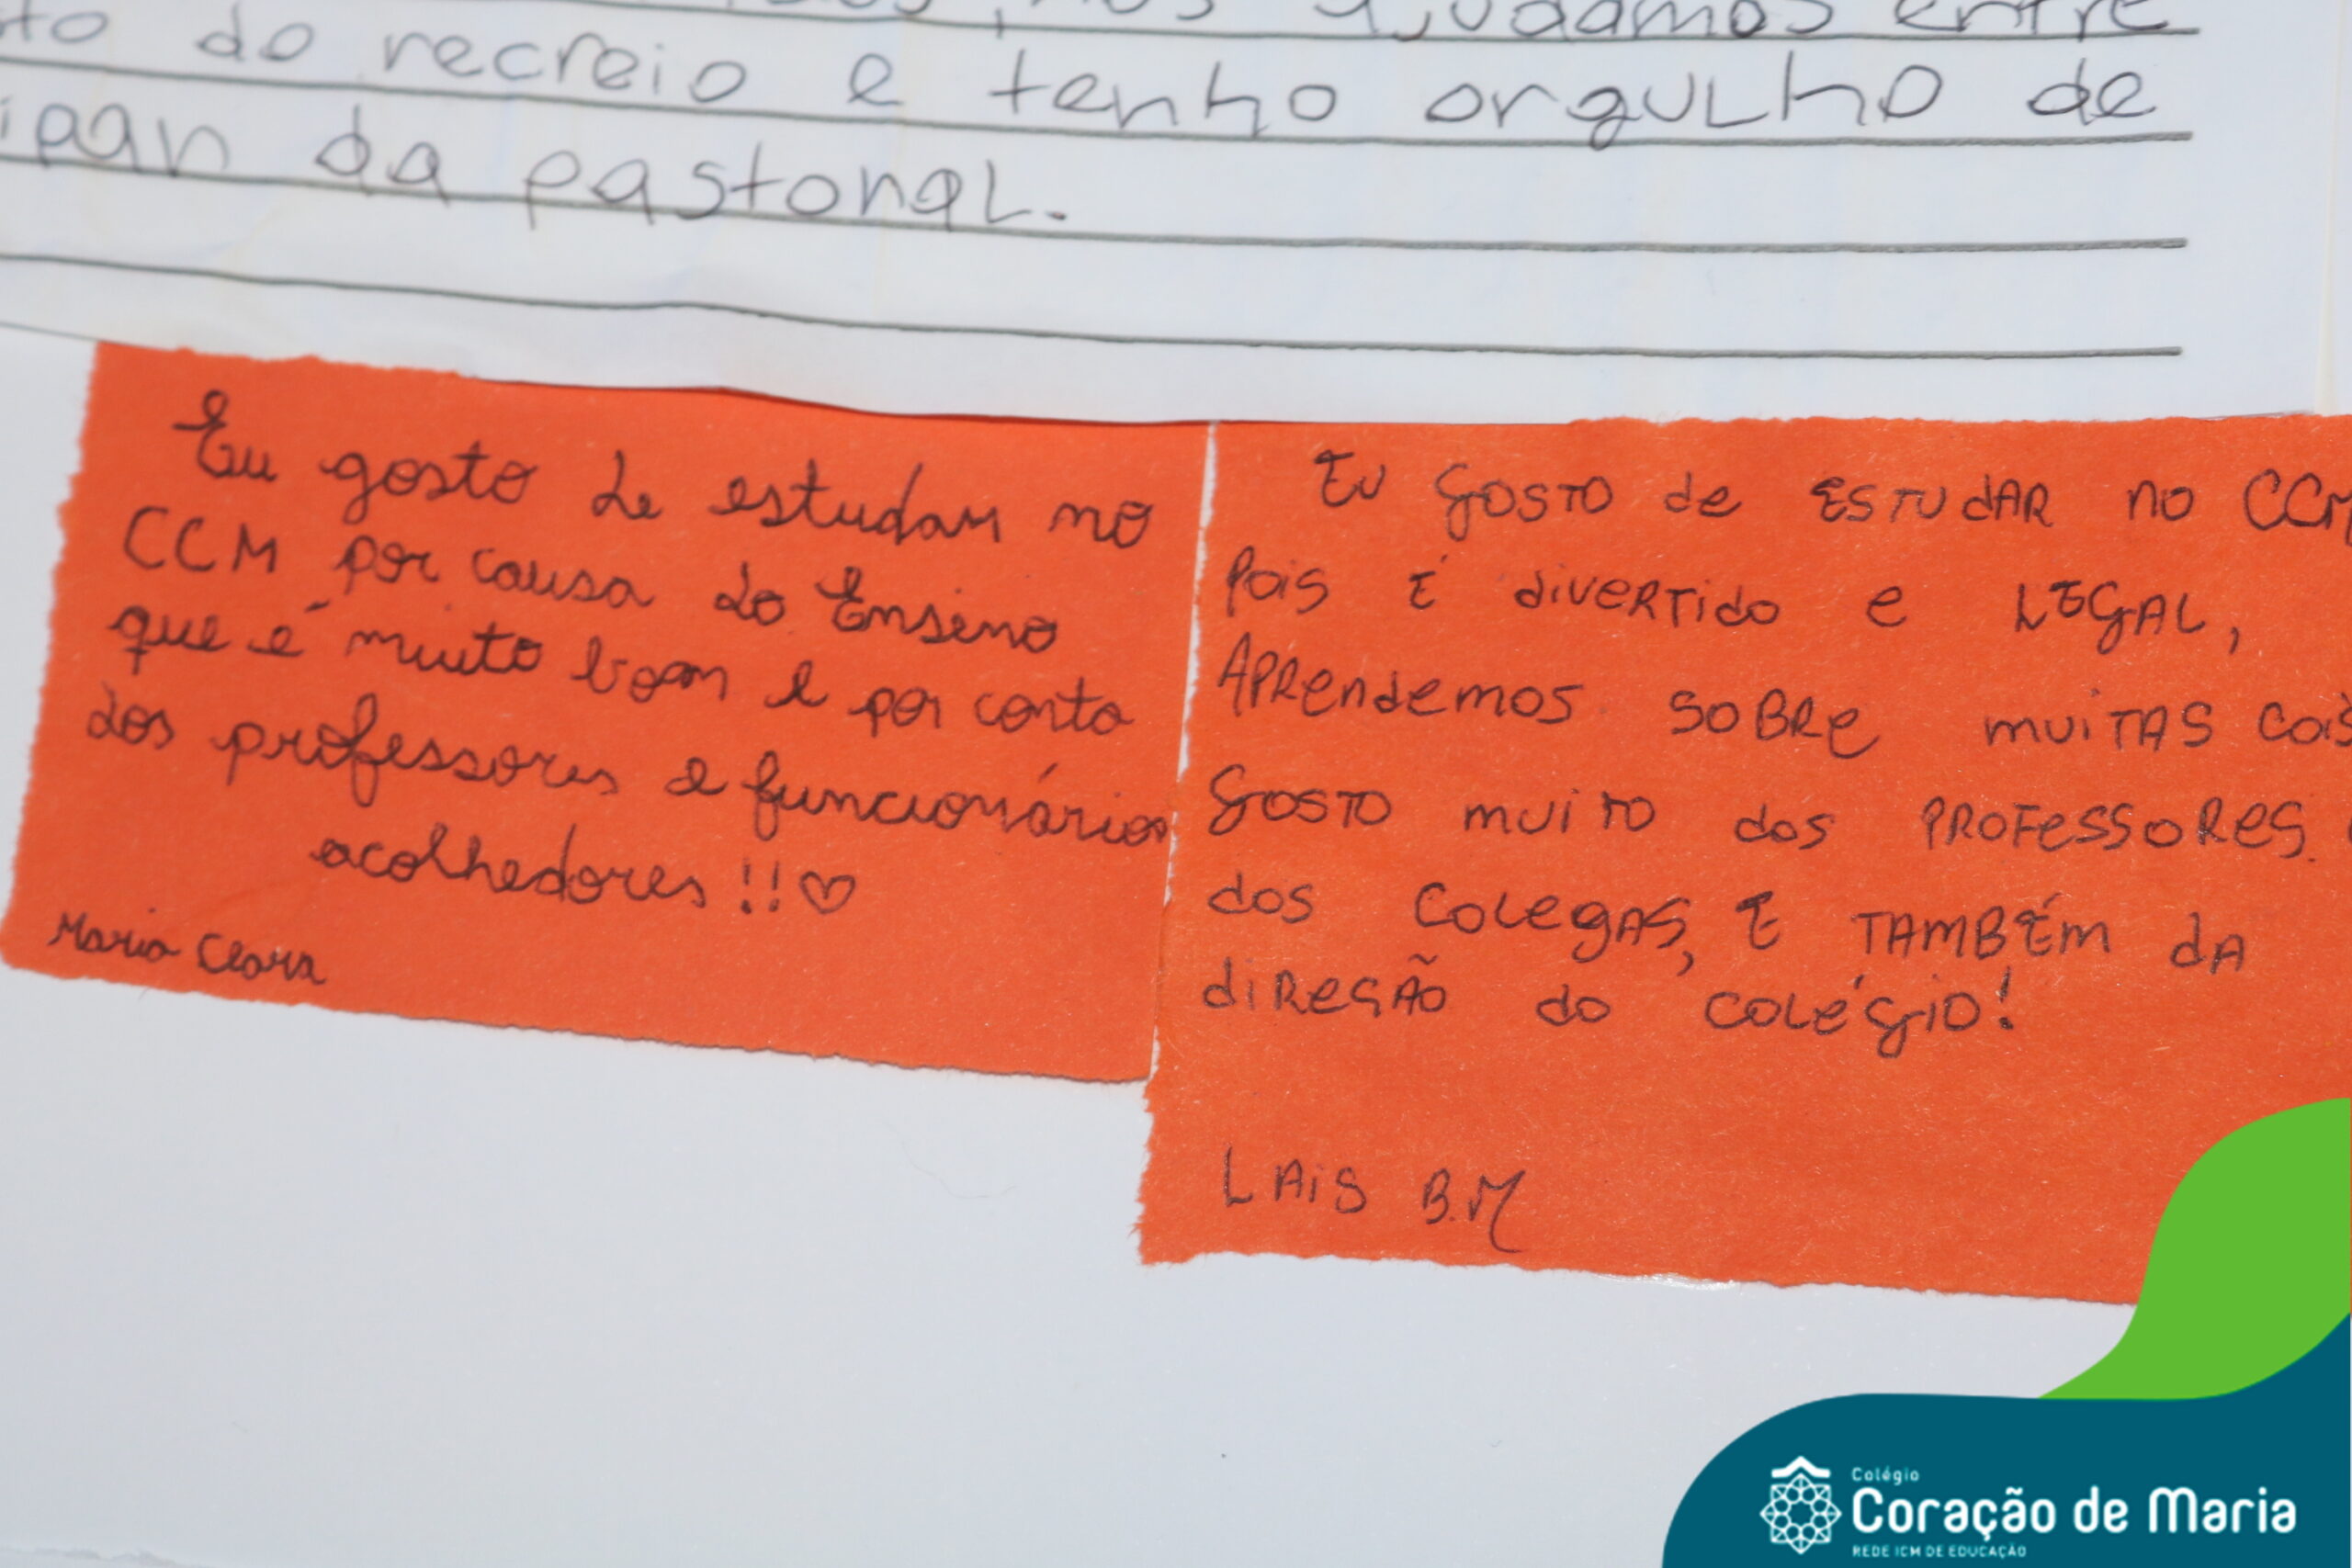 nos ajudamos entre
do recreio e tenho orgulho de
da pastoral.
Eu gosto de estudar no
CCM por causa do Ensino
que é muito bom e por conta
dos professores e funcionários
acolhedores!!♡
Maria Clara
Eu gosto de ESTUdAR no CCM
Pois É divERTido e LEGAL,
APRendemos SOBRe muiTAS cois
GOSTO muiTO dos PROFeSSOReS
dos COLegAS, E TAMBÉm dA
diReçÃO do COLéGiO!
LAiS B.M
Colégio
Coração de Maria
REDE ICM DE EDUCAÇÃO